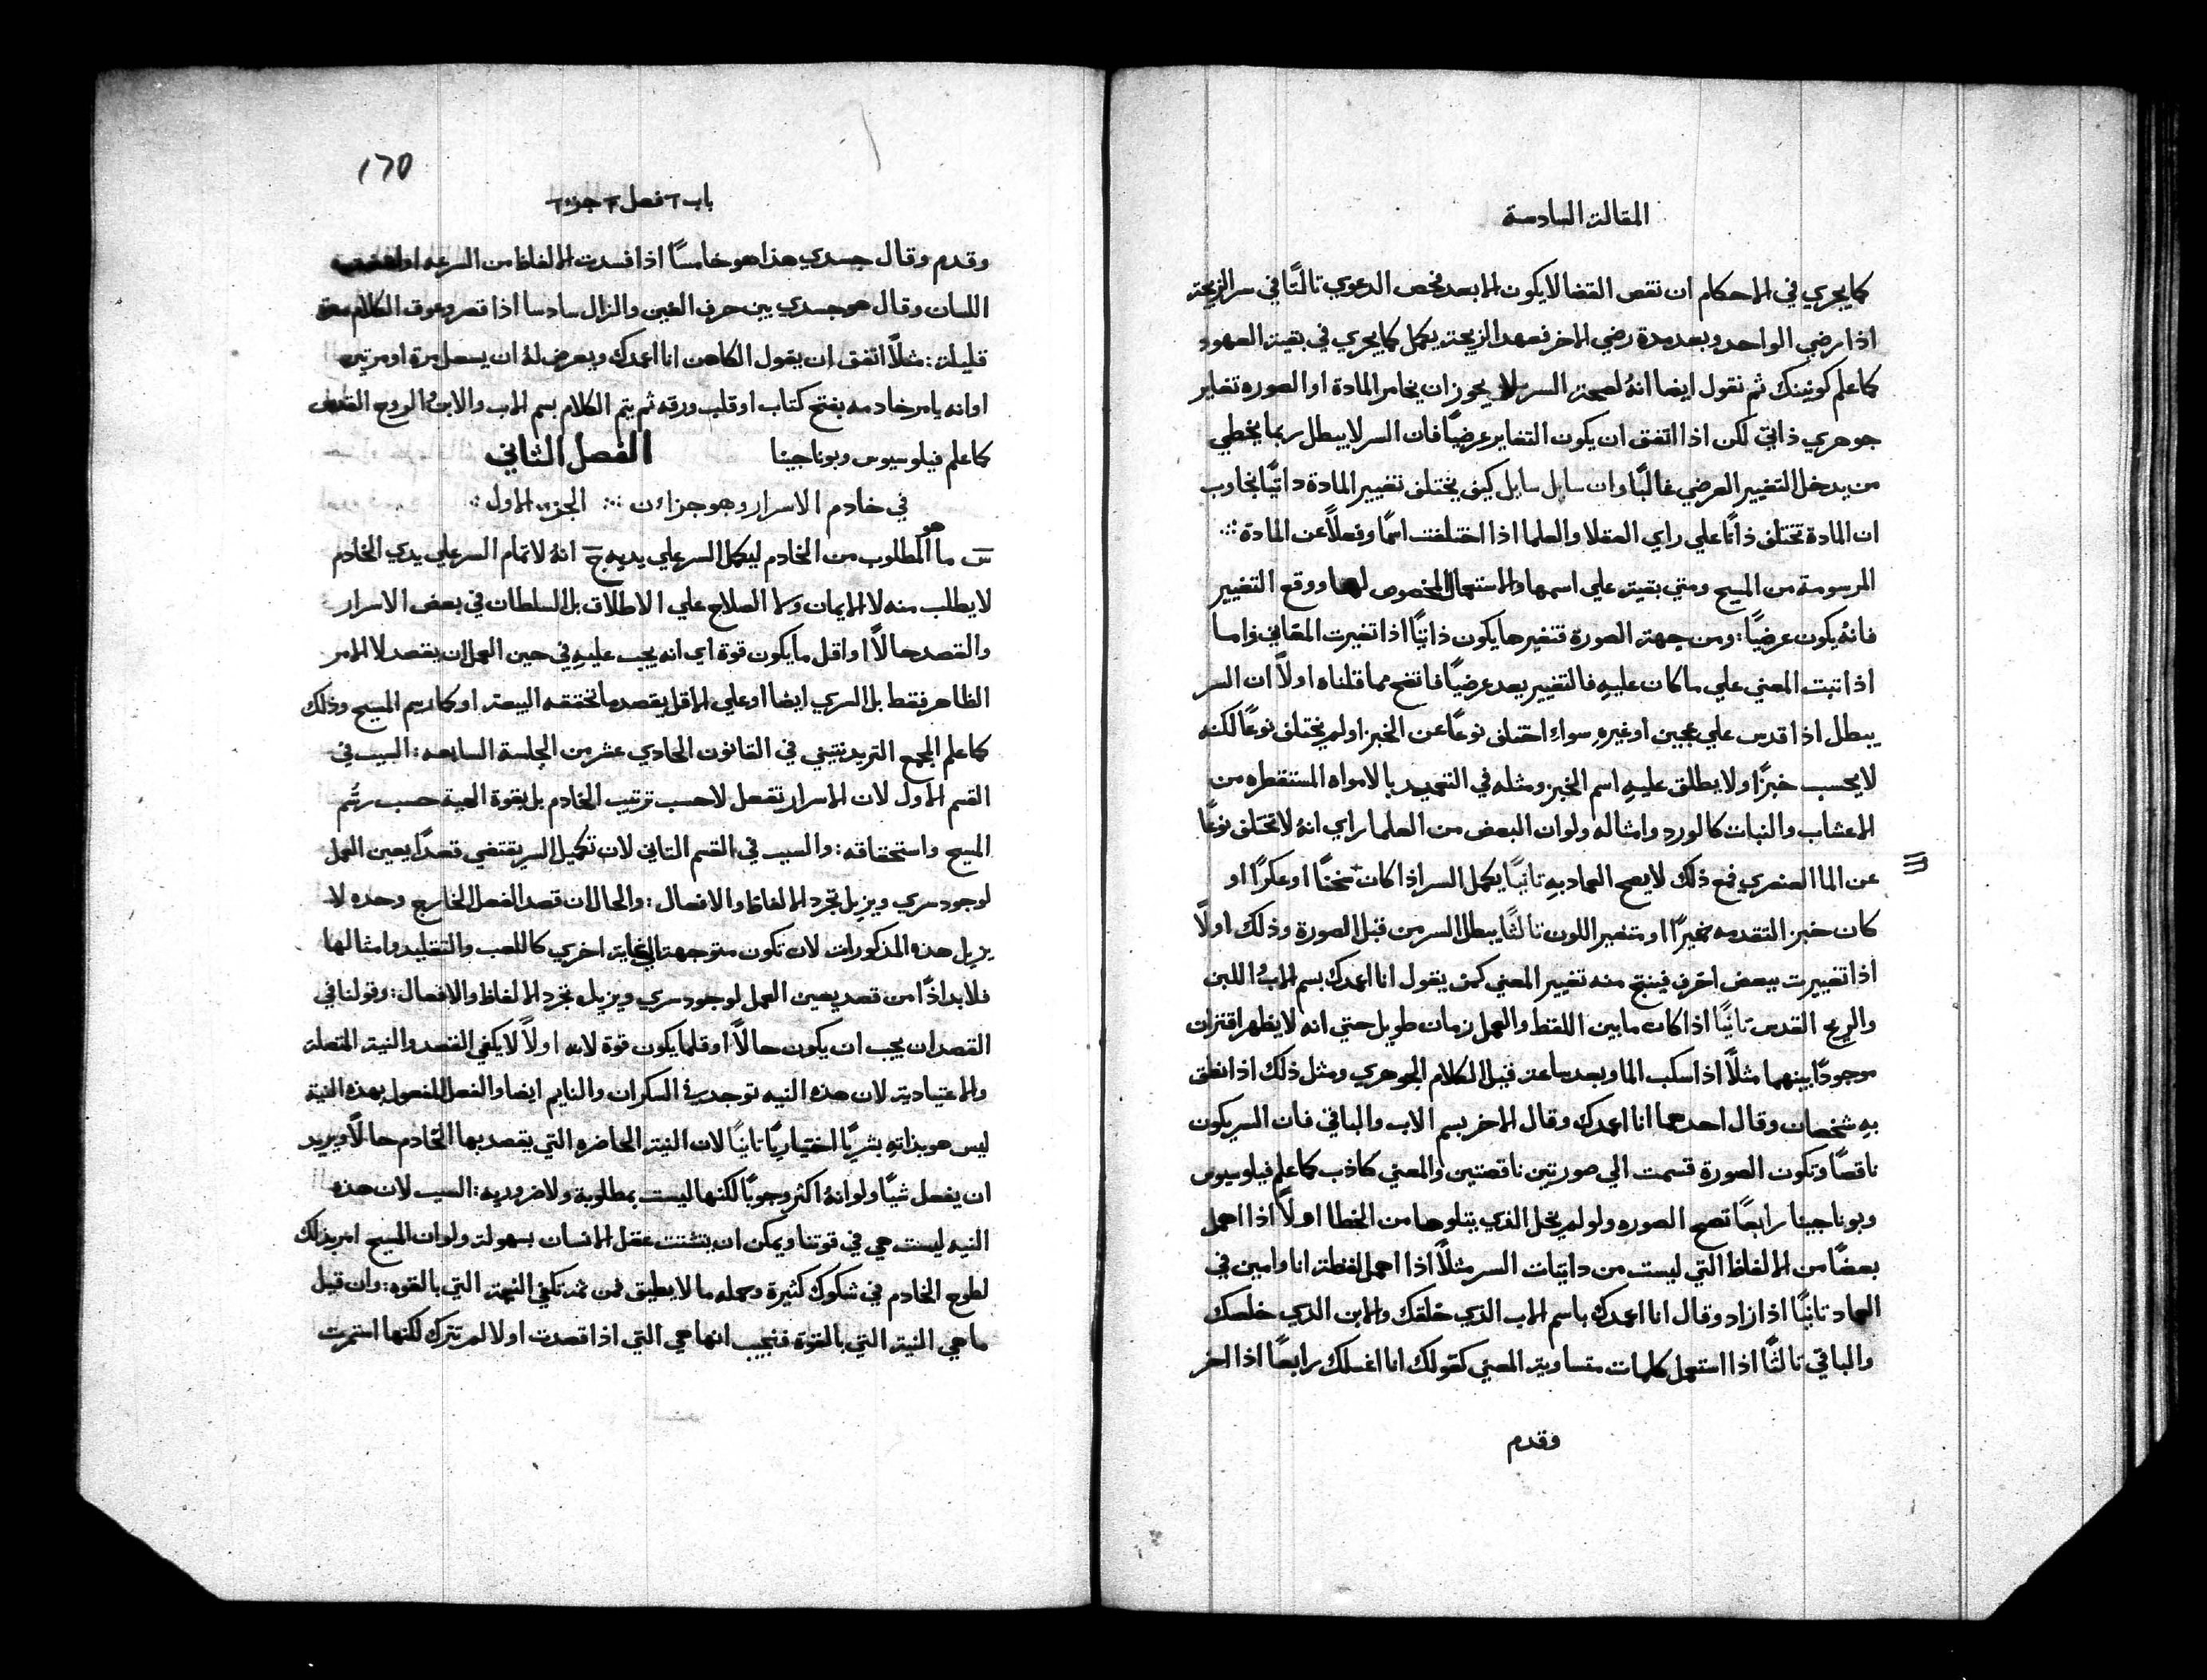 المقالة السادسة
كما يجري في الاحكام ان نقص القضا لا يكون الا بعد فحص الدعوي ثالثًا في سر الزيجة
اذا رضي الواحد وبعد مدة رضي الاخر فعهد الزيجة يكمل كما يجري في بقية العهود
كما علم كونينك ثم نقول ايضا انهُ لصحة السر لا يجوز ان يخامر المادة او الصوره تغاير
جوهري ذاتي لكن اذا اتفق ان يكون التغاير عرضيًا فان السر لا يبطل ربما يخطي
من يدخل التغيير العرضي غالبًا وان سايل سايل كيف يختلف تغيير المادة ذاتيًا نجاوب
ان المادة تختلف ذاتًا علي راي العقلا والعلما اذا اختلفت اسمًا وفعلًا عن المادة
المرسومة من المسيح ومتي بقيت علي اسمها والاستعمال المخصوص لها ووقع التغيير
فانهُ يكون عرضيًا: ومن جهة الصورة فتغيرها يكون ذاتيًا اذا تغيرت المعاني واما
اذا تبت المعني علي ما كان عليهِ فالتغيير يعد عرضيًا فاتضح مما قلناه اولًا ان السر
يبطل اذا قدس علي عجين او غيرهِ سواء اختلف نوعًا عن الخبز او لم يختلف نوعًا لكنه
لا يحسب خبزًا ولا يطلق عليهِ اسم الخبز ومثله في التعميد بالامواه المستقطره من
الاعشاب والنبات كالورد وامثاله ولو ان البعض من العلما راي انهُ لا تختلف نوعًا
عن الما العنصري فمع ذلك لا يصح العماد بهِ ثانيًا يكمل السر اذا كان سخنًا او عكرًا او
كان خبز التقدمه خميرًا او متغير اللون ثالثًا يبطل السر من قبل الصورة وذلك اولًا
اذا تغييرت ببعض احرف فينتج منه تغيير المعني كمن يقول انا اعمدك بسم الاب اللبن
والريح القدس ثانيًا اذا كان ما بين اللفظ والعمل زمان طويل حتي انه لا يظهر اقتران
موجودًا بينهما مثلًا اذا سكب الما وبعد ساعة قيل الكلام الجوهري ومثل ذلك اذا نطق
بهِ شخصان وقال احدهما انا اعمدك وقال الاخر بسم الاب والباقي فان السر يكون
ناقصًا وتكون الصورة قسمت الي صورتين ناقصتين والمعني كاذب كما علم فيلوسيوس
وبوناجينا رابعًا تصح الصوره ولو لم يخل الذي يتلوها من الخطا اولًا اذا اهمل
بعضًا من الالفاظ التي ليست من ذاتيات السر مثلًا اذا اهمل لفظة انا وامين في
العماد ثانيًا اذا زاد وقال انا اعمدك باسم الاب الذي خلقك والابن الذي خلصك
والباقي ثالثًا اذا استعمل كلمات متساوية المعني كقولك انا اغسلك رابعًا اذا اخر
وقدم
١٦٥
باب ٦ فصل ٢ جزء ١
وقدم وقال جسدي هذا هو خامسًا اذا فسدت الالفاظ من السرعه او
اللسان وقال هو جسدي بين حرف الغين والزال سادسا اذا قصر وعوق الكلام
قليلة: مثلًا اتفق ان يقول الكاهن انا اعمدك ويعرض لهُ ان يسعل مرة او مرتين
او انه يامر خادمه بفتح كتاب او قلب ورقه ثم يتم الكلام بسم الاب والابن والروح القدس
كما علم فيلوسيوس وبوناجينا الفصل الثاني
في خادم الاسرار وهو جزاءن الجزء الاول
س ما هو المطلوب من الخادم ليكمل السر علي يديه ج انهُ لاتمام السر علي يدي الخادم
لا يطلب منه لا الايمان ولا الصلاح علي الاطلاق بل السلطان في بعض الاسرار
والقصد حالًا او اقل ما يكون قوة اي انه يجب عليهِ في حين العمل ان يقصد لا الامر
الظاهر فقط بل السري ايضا او علي الاقل يقصد ما تحققه البيعة او كما رسم المسيح وذلك
كما علم المجمع التريدنتيني في القانون الحادي عشر من الجلسة السابعه: السبب في
القسم الاول لان الاسرار تفعل لا حسب ترتيب الخادم بل بقوة الهية حسب رسم
المسيح واستحقاقه: والسبب في القسم الثاني لان تكميل السر يقتضي قصدًا يعين العمل
لوجود سري ويزيل تجرد الالفاظ والافعال: والحال ان قصد الفعل الخارج وحده لا
يزيل هذه المذكورات لان تكون متوجهة الي غاية اخري كاللعب والتقليد وامثالها
فلا بد اذًا من قصد يعين العمل لوجود سري ويزيل تجرد الالفاظ والافعال: وقولنا في
القصد ان يجب ان يكون حالًا او قلما يكون قوة لانه اولًا لا يكفي القصد والنية المتعلة
والاعتيادية لان هذه النيه توجد في السكران والنايم ايضا والفعل المفعول بهذه النية
ليس هو بذاتهِ بشريًا اختياريًا ثانيًا لان النية الحاضره التي يقصد بها الخادم حالًا ويريد
ان يفعل شيًا ولو انهُ اكثر وجوبًا لكنها ليست بمطلوبة ولا ضروريه: السبب لان هذه
النيه ليست هي في قوتنا ويمكن ان يتشتت عقل الانسان بسهولة ولو ان المسيح امر بذلك
لطوح الخادم في شكوك كثيرة وحمله ما لا يطيق فمن ثمة تكفي النية التي بالقوه: وان قيل
ما هي النية التي بالقوة فنجيب انها هي التي اذا قصدت اولا لم تترك لكنها استمرت